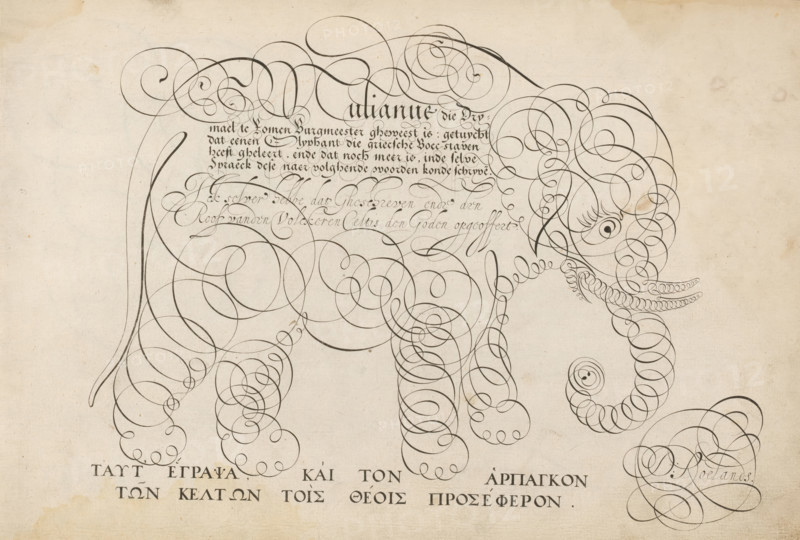 Mutianus die Dry-
mael te Romen Burgmeester gheweest is: getuycht
dat eenen Olyphant die griecsche Boecstaven
heeft gheleert. ende dat noch meer is, inde selve
Spraeck dese naer volghende woorden konde schryvē.
Ick selver hebbe dat Gheschreven ende den
Roof vanden Volckeren Celtis, den Goden opgeoffert.
ΤΑΥΤ ἜΓΡΑΨΑ. ΚΑῚ ΤΟΝ ἉΡΠΑΓΚΟΝ
ΤΩ͂Ν ΚΕΛΤΩΝ ΤΟῖΣ ΘΕΟΙΣ ΠΡΟΣΈΦΕΡΟΝ.
Roelands.